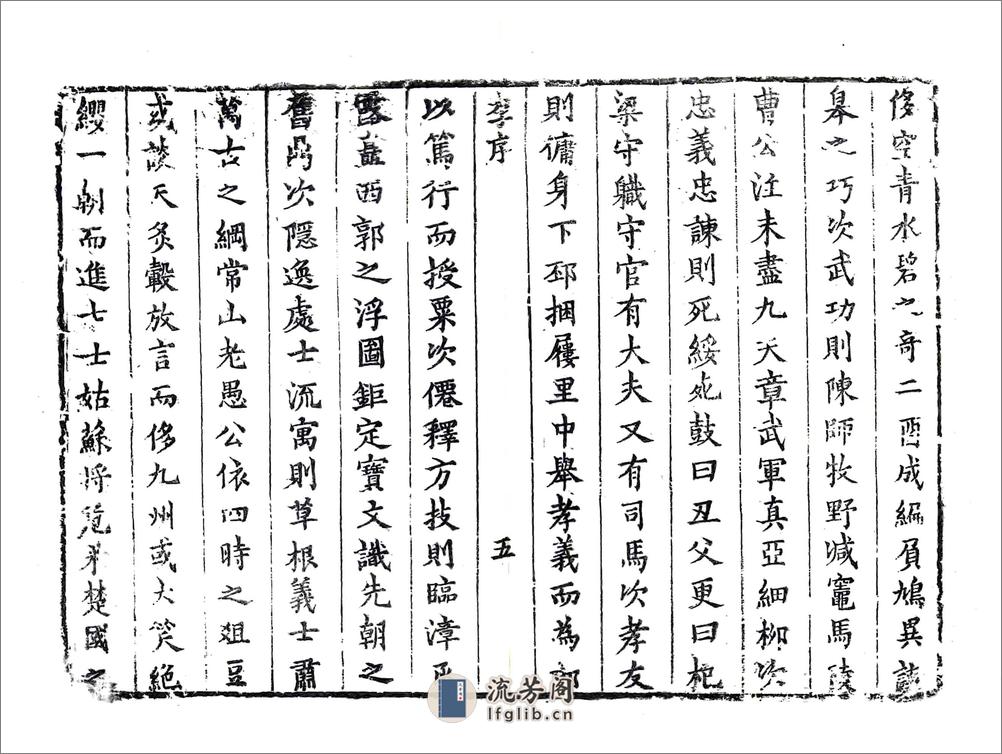 侈空青水碧之奇二酉成編屓鳩異
皋之巧次武功則陳師牧野減竈馬陵
曹公注未盡九天章武軍真亞細柳次
忠義忠諫則死綏死鼓曰丑父更曰杞
梁守職守官有大夫又有司馬次孝友
則傭身下邳捆屨里中舉孝義而為郎
李序
五
以篤行而授粟次僊釋方技則臨漳
露盋西郭之浮圖鉅定寶文識先朝之
舊鼎次隱逸處士流寓則草根義士肅
萬古之綱常山老愚公依四時之俎豆
或談天炙轂放言而侈九州或大笑絕
纓一朝而進七士姑蘇將覓楚國之
流芳阁
lfglib.cn